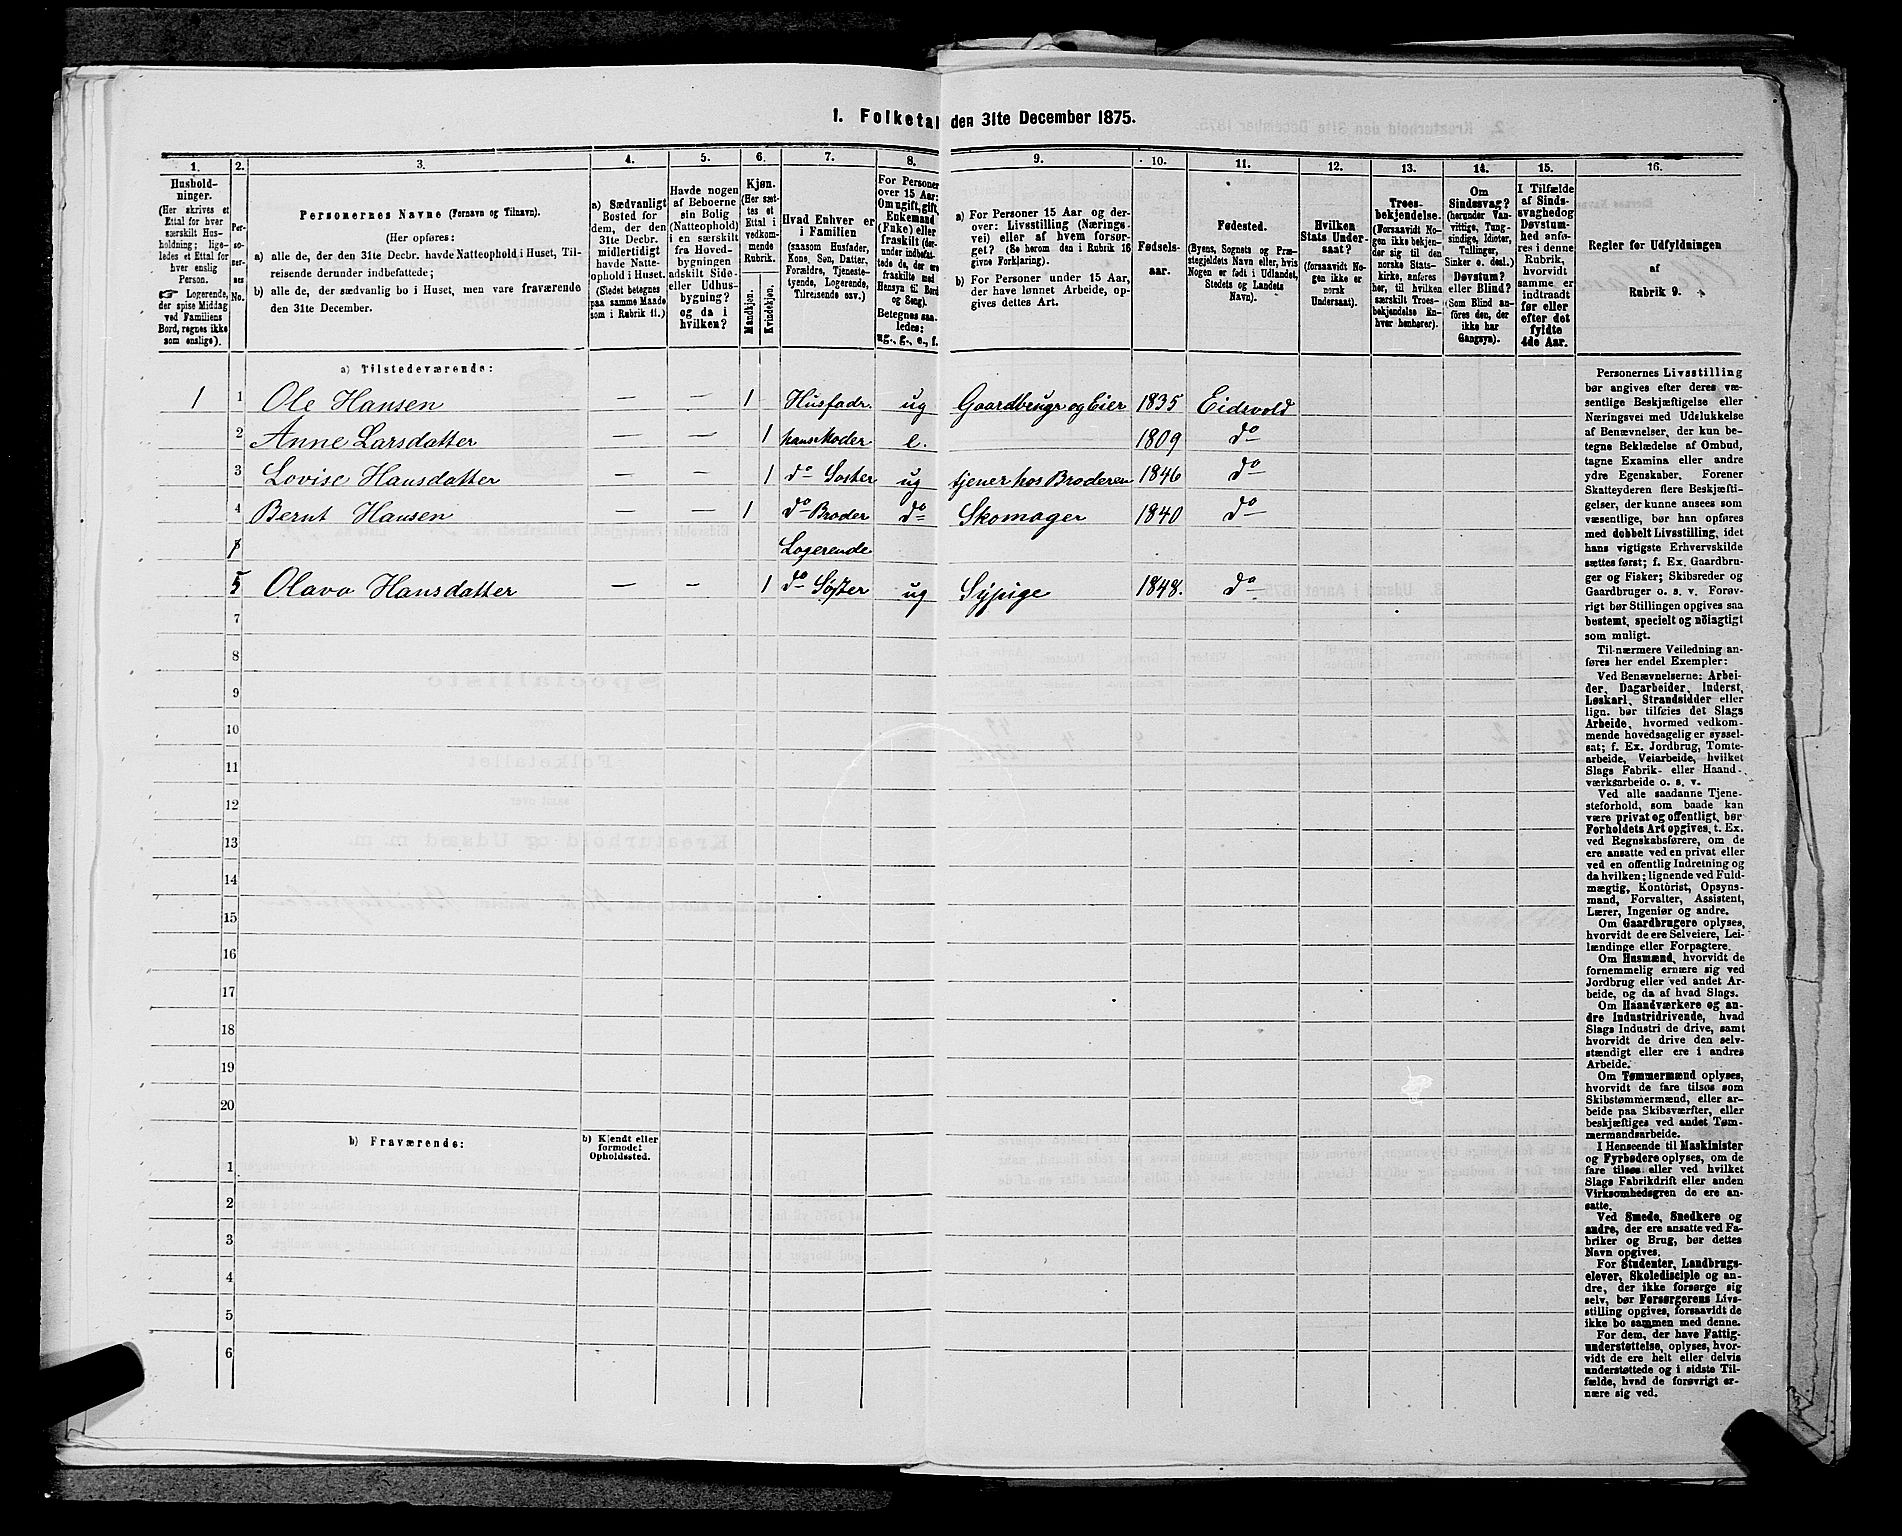 1. Folketal den 31te December 1875.
1. 2. 3. 4. 5. 6. 7. 8. 9. 10. 11. 12. 13. 14. 15. 16.
Hushold-
ninger.
(Her skrives et
Ettal for hver
særskilt Hus-
holdning; lige-
ledes et Ettal for
hver enslig
Person.
☞ Logerende,
der spise Middag
ved Familiens
Bord, regnes ikke
som enslige).
Per-
so-
ner-
nes
No.
Personernes Navne (Fornavn og Tilnavn).
(Her opføres:
a) alle de, der den 31te Decbr. havde Natteophold i Huset, Til-
reisende derunder indbefattede;
b) alle de, der sædvanlig bo i Huset, men vare fraværende
den 31te December.
a) Sædvanligt
Bosted for
dem, der den
31te Decbr.
midlertidigt
havde Natte-
ophold i Huset.
(Stedet betegnes
paa samme Maade
som i Rubrik 11.)
Havde nogen
af Beboerne
sin Bolig
(Natteophold)
i en særskilt
fra Hoved-
bygningen
adskilt Side-
eller Udhus-
bygning?
og da i
hvilken?
Kjøn.
(Her sæt-
tes et
Ettal i
vedkom-
mende
Rubrik.
Mandkjøn.
Kvindekjøn.
Hvad Enhver er
i Familien
(saasom Husfader,
Kone, Søn, Datter,
Forældre, Tjeneste-
tyende, Logerende,
Tilreisende osv.)
For Personer
over 15 Aar:
Om ugift, gift,
Enkemand
(Enke) eller
fraskilt (der-
under indbefat-
tede de, der ere
fraskilte med
Hensyn til Bord
og Seng).
Betegnes saa-
ledes:
ug., g., e., f.
a) For Personer 15 Aar og der-
over: Livsstilling (Nærings-
vei) eller af hvem forsør-
get? (Se herom den i Rubrik 16
givne Forklaring).
b) For Personer under 15 Aar,
der have lønnet Arbeide, op-
gives dettes Art.
Fødsels-
aar.
Fødested.
(Byens, Sognets og Præ-
stegjeldets Navn eller, hvis
Nogen er født i Udlandet,
Stedets og Landets
Navn).
Hvilken
Stats Under-
saat?
(forsaavidt No-
gen ikke er
norsk
Undersaat).
Troes-
bekjendelse.
(Forsaavidt No-
gen ikke bekjen-
der sig til den
norske Stats-
kirke, anføres
her, til hvilken
særskilt Troes-
bekjendelse En-
hver henhører).
Om
Sindssvag?
(herunder Van-
vittige, Tung-
sindige, Idioter,
Tullinger,
Sinker o. desl.)
Døvstum?
eller Blind?
(Som Blind an-
føres den, der
ikke har
Gangsyn).
I Tilfælde
af Sinds-
svaghed og
Døvstum-
hed anfø-
res i denne
Rubrik,
hvorvidt
samme er
indtraadt
før eller
efter det
fyldte
4de Aar.
Regler for Udfyldningen
af
Rubrik 9.
a) Tilstedeværende:
1 1 Ole Hansen — — 1 Husfadr. ug Gaardbrugr og Eier 1835 Eidsvold
2 Anne Larsdatter — — 1 hans Moder e. 1809 do
3 Lovise Hansdatter — — 1 do Søster ug tjener hos Broderen 1846 do
4 Bernt Hansen — — 1 do Broder do Skomager 1840 do
Logerende
5 Olava Hansdatter — — 1 do Søster ug Sypige 1848. do
7
8
9
10
11
12
13
14
15
16
17
18
19
20
b) Fraværende:
b) Kjendt eller
formodet
Opholdssted.
1
2
3
4
5
6
Personernes Livsstilling
bør angives efter deres væ-
sentlige Beskjæftigelse eller
Næringsvei med Udelukkelse
af Benævnelser, der kun be-
tegne Beklædelse af Ombud,
tagne Examina eller andre
ydre Egenskaber. Forener
Skatteyderen flere Beskjæfti-
gelser, der kunne ansees som
væsentlige, bør han opføres
med dobbelt Livsstilling, idet
hans vigtigste Erhvervskilde
sættes først; f. Ex. Gaardbru-
ger og Fisker; Skibsreder og
Gaardbruger o. s. v. Forøv-
rigt bør Stillingen opgives saa
bestemt, specielt og nöiagtigt
som muligt.
Til nærmere Veiledning an-
føres her endel Exempler:
Ved Benævnelserne: Arbei-
der, Dagarbeider, Inderst,
Løskarl, Strandsidder eller
lign. bør tilføies det Slags
Arbeide, hvormed vedkom-
mende hovedsagelig er syssel-
sat; f. Ex. Jordbrug, Tomte-
arbeide, Veiarbeide, hvilket
Slags Fabrik- eller Haand-
værksarbeide o. s. v.
Ved alle saadanne Tjene-
steforhold, som baade kan
være privat og offentligt, bør
Forholdets Art opgives, t. Ex.
ved Regnskabsførere, om de
ere ansatte ved en privat eller
ved en offentlig Indretning og
da hvilken; lignende ved Fuld-
mægtig, Kontorist, Opsyns-
mand, Forvalter, Assistent,
Lærer, Ingeniør og andre.
Om Gaardbrugere oplyses,
hvorvidt de ere Selveiere, Lei-
lændinge eller Forpagtere.
Om Husmænd, hvorvidt de
fornemmelig ernære sig ved
Jordbrug eller ved andet Ar-
beide, og da af hvad Slags.
Om Haandværkere og an-
dre Industridrivende, hvad
Slags Industri de drive, samt
hvorvidt de drive den selv-
stændigt eller ere i andres
Arbeide.
Om Tømmermænd oplyses,
hvorvidt de fare tilsøs som
Skibstømmermænd, eller ar-
beide paa Skibsværfter, eller
beskjæftiges ved andet Tøm-
mermandsarbeide.
I Henseende til Maskinister
og Fyrbødere oplyses, om de
fare tilsøs eller ved hvilket
Slags Fabrikdrift eller anden
Virksomhedsgren de ere an-
satte.
Ved Smede, Snedkere og
andre, der ere ansatte ved Fa-
briker og Brug, bør dettes
Navn opgives.
For Studenter, Landbrugs-
elever, Skoledisciple og an-
dre, der ikke forsørge sig
selv, bør Forsørgerens Livs-
stilling opgives, forsaavidt de
ikke bo sammen med denne.
For dem, der have Fattig-
understøttelse, oplyses, hvor-
vidt de ere helt eller delvis
understøttede og i sidste Til-
fælde, hvad de forøvrigt er-
nære sig ved.